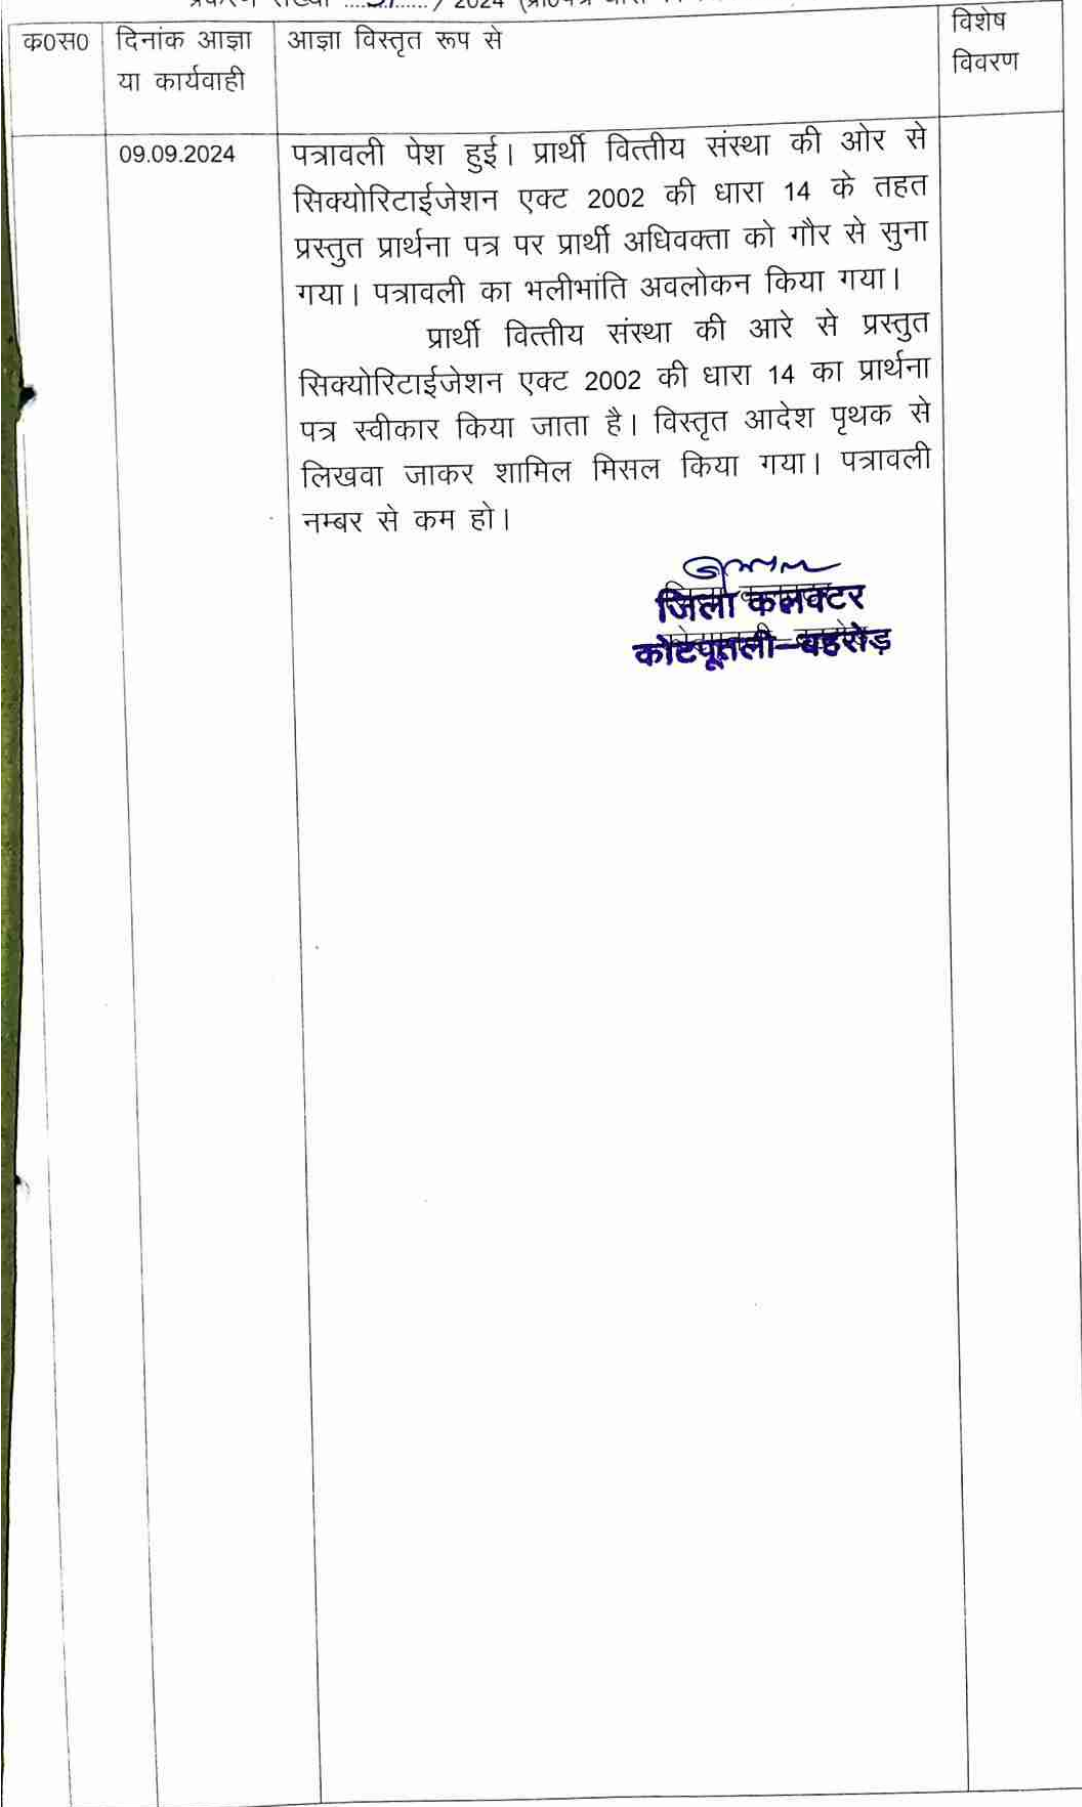 / 2024
क0स0 दिनांक आज्ञा या कार्यवाही आज्ञा विस्तृत रूप से विशेष विवरण
09.09.2024 पत्रावली पेश हुई। प्रार्थी वित्तीय संस्था की ओर से
सिक्योरिटाईजेशन एक्ट 2002 की धारा 14 के तहत
प्रस्तुत प्रार्थना पत्र पर प्रार्थी अधिवक्ता को गौर से सुना
गया। पत्रावली का भलीभांति अवलोकन किया गया।
प्रार्थी वित्तीय संस्था की आरे से प्रस्तुत
सिक्योरिटाईजेशन एक्ट 2002 की धारा 14 का प्रार्थना
पत्र स्वीकार किया जाता है। विस्तृत आदेश पृथक से
लिखवा जाकर शामिल मिसल किया गया। पत्रावली
नम्बर से कम हो।
जिला कलक्टर
कोटपूतली–बहरोड़